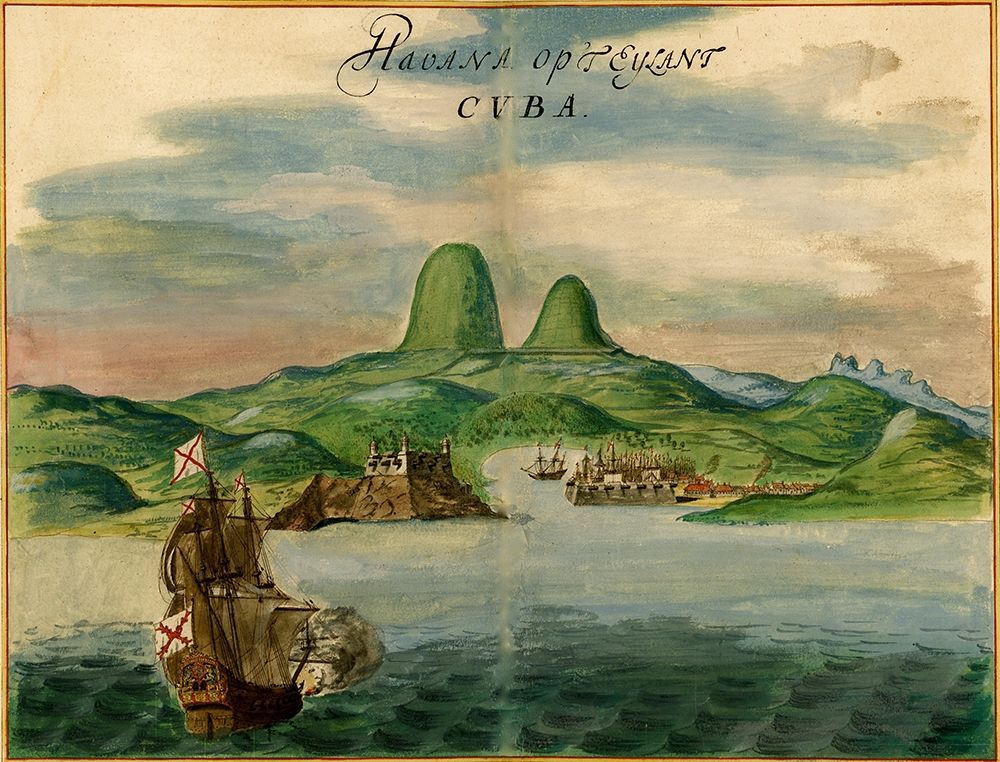 Havana op'T Eylant
CVBA.